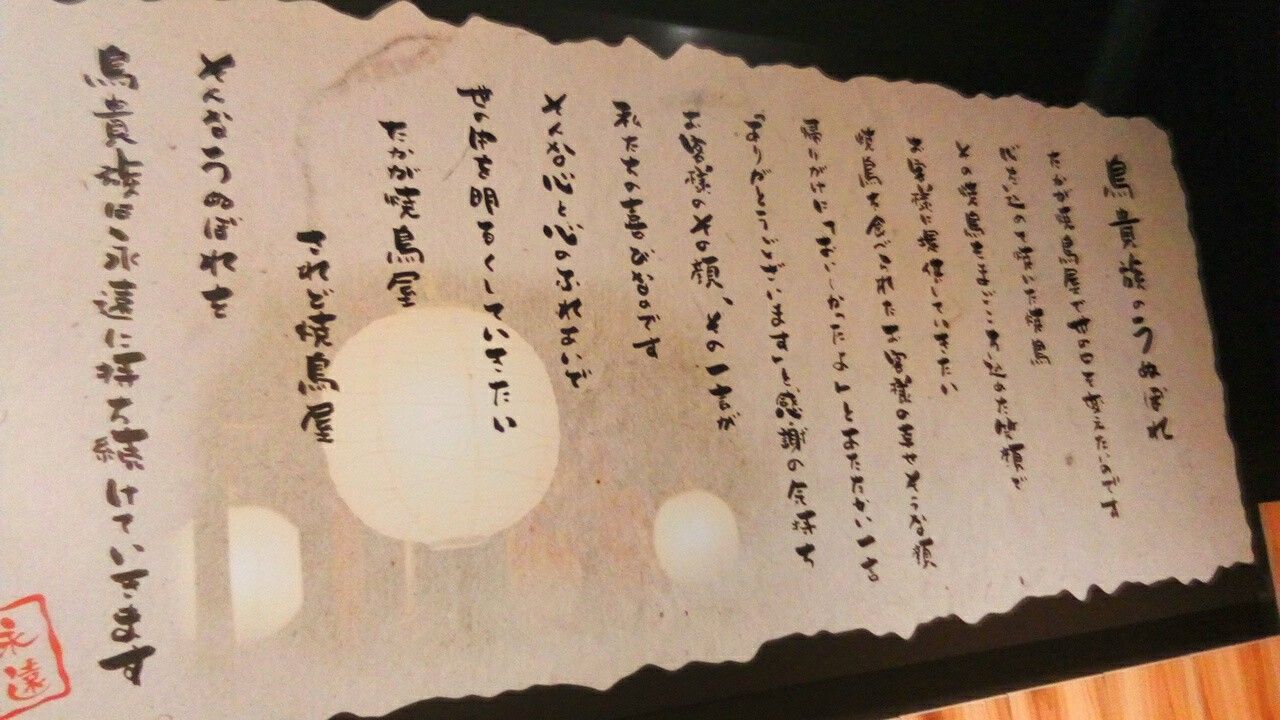 鳥貴族のうぬぼれ
たかが焼鳥屋で世の中を変えたいのです
焼いた焼鳥
その焼鳥を 接客で
お客様に提供していきたい
焼鳥を食べて頂いたお客様の幸せそうな顔
帰りぎわに「おいしかったよ」とあたたかいお
「ありがとうございます」と感謝の気持ち
お客様のその顔、その一言が
私たちの喜びなのです
そんな心と心のふれあいで
世の中を明るくしていきたい
たかが焼鳥屋
されど焼鳥屋
そんなうぬぼれを
鳥貴族は永遠に持ち続けていきます
永遠